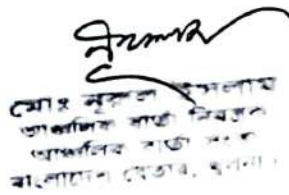 মোঃ নূরুল ইসলাম
আঞ্চলিক বার্তা নিয়ন্ত্রক
আঞ্চলিক বার্তা
বাংলাদেশ বেতার, খুলনা।